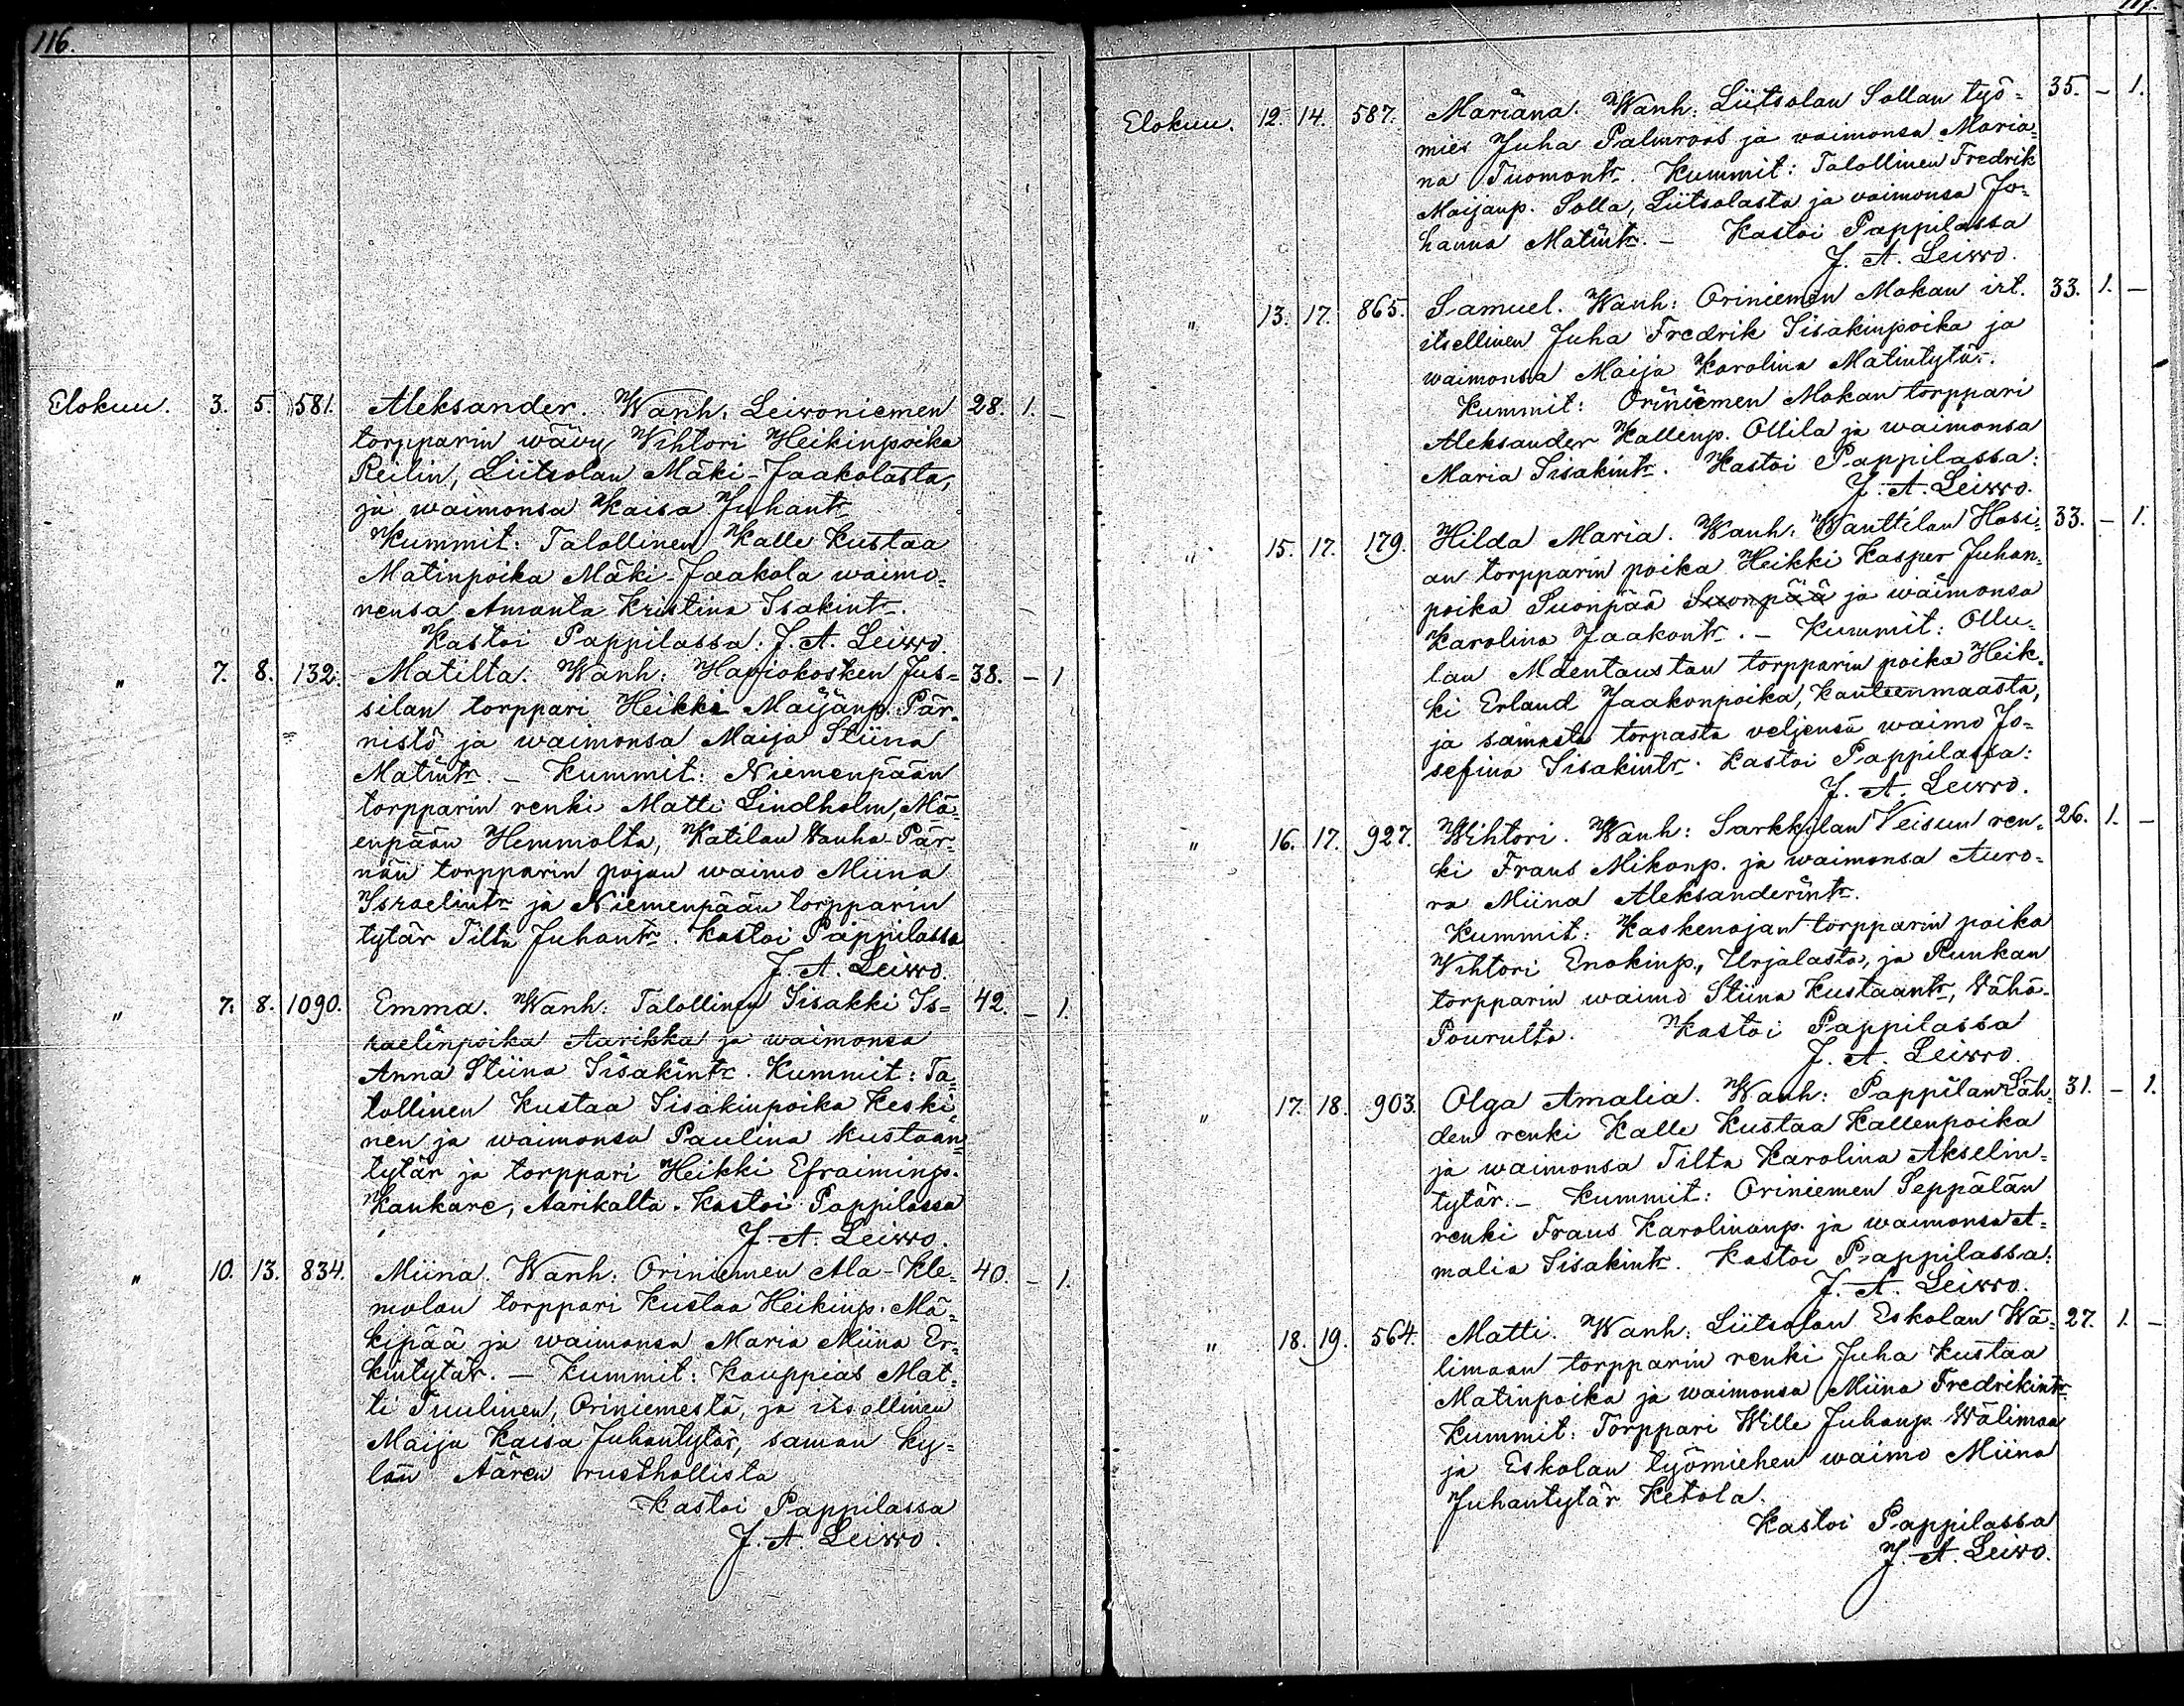 116.
Elokuu. 3. 5. 581. Aleksander. Wanh: Leiwoniemen 28. 1. –
torpparin wävy Wihtori Heikinpoika
Reilin, Liitsolan Mäki-Jaakolasta,
ja waimonsa Kaisa Juhantr
Kummit: Talollinen Kalle Kustaa
Matinpoika Mäki-Jaakola waimo=
nensa Amanta Kristina Isakintr.
Kastoi Pappilassa: J. A. Leiwo.
" 7. 8. 132. Matilta. Wanh: Haviokosken Jus= 38. – 1
silan torppari Heikki Maijanp. Pär=
nistö ja waimonsa Maija Stiina
Matintr. – Kummit: Niemenpään
torpparin renki Matti Lindholm, Mä=
enpään Hemmolta, Katilan Vanha-Pär=
nän torpparin pojan waimo Miina
Israelintr ja Niemenpään torpparin
tytär Tilta Juhantr. Kastoi Pappilassa
J. A. Leiwo.
" 7. 8. 1090. Emma. Wanh: Talollinen Iisakki Is= 42. – 1.
raelinpoika Aarikka ja waimonsa
Anna Stiina Iisakintr. Kummit: Ta=
lollinen Kustaa Iisakinpoika Keski=
nen ja waimonsa Paulina Kustaan=
tytär ja torppari Heikki Efraiminp.
Kankare, Aarikalta. Kastoi Pappilassa
J. A. Leiwo.
" 10. 13. 834. Miina. Wanh: Oriniemen Ala-Kle= 40. – 1.
molan torppari Kustaa Heikinp. Mä=
kipää ja waimonsa Maria Miina Er=
kintytär. – Kummit: Kauppias Mat=
ti Tuulinen, Oriniemestä, ja itsellinen
Maija Kaisa Juhantytär, saman ky=
län Aären rusthollista
Kastoi Pappilassa
J. A. Leiwo.
117.
Elokuu. 12. 14. 587. Mariana. Wanh: Liitsolan Sollan työ= 35. – 1.
mies Juha Palmroos ja vaimonsa Maria=
na Tuomontr. Kummit: Talollinen Fredrik
Maijanp. Solla, Liitsolasta ja vaimonsa Jo=
hanna Matintr. – Kastoi Pappilassa
J. A. Leiwo.
" 13. 17. 865. Samuel. Wanh: Oriniemen Mokan irt. 33. 1. –
itsellinen Juha Fredrik Iisakinpoika ja
waimonsa Maija Karolina Matintytär.
Kummit: Oriniemen Mokan torppari
Aleksander Kallenp. Ollila ja waimonsa
Maria Iisakintr. Kastoi Pappilassa:
J. A. Leiwo.
" 15. 17. 179. Hilda Maria. Wanh: Wanttilan Hosi= 33. – 1.
an torpparin poika Heikki Kasper Juhan=
poika Suonpää Suonpää ja waimonsa
Karolina Jaakontr. – Kummit: Ollu=
lan torpparin poika Heik=
ki Erland Jaakonpoika, Kanteenmaasta,
ja samasta torpasta veljensä waimo Jo=
sefina Iisakintr. Kastoi Pappilassa:
J. A. Leiwo.
" 16. 17. 927. Wihtori. Wanh: Sarkkilan Veisun ren= 26. 1. –
ki Frans Mikonp. ja waimonsa Auro=
ra Miina Aleksanderintr.
Kummit: Kaskenojan torpparin poika
Wihtori Enokinp., Urjalasta, ja Punkan
torpparin waimo Stiina Kustaantr, Vähä-
Pourulta. Kastoi Pappilassa
J. A. Leiwo.
" 17. 18. 903. Olga Amalia. Wanh: Pappilan Läh= 31. – 1.
den renki Kalle Kustaa Kallenpoika
ja waimonsa Tilta Karolina Akselin=
tytär. – Kummit: Oriniemen Seppälän
renki Frans Karolinanp. ja waimonsa A=
malia Iisakintr. Kastoi Pappilassa:
J. A. Leiwo.
" 18. 19. 564. Matti. Wanh: Liitsolan Eskolan Wä= 27. 1. –
limaan torpparin renki Juha Kustaa
Matinpoika ja waimonsa Miina Fredrikintr
Kummit: Torppari Wille Juhanp. Wälimaa
ja Eskolan työmiehen waimo Miina
Juhantytär Ketola.
Kastoi Pappilassa
J. A. Leiwo.